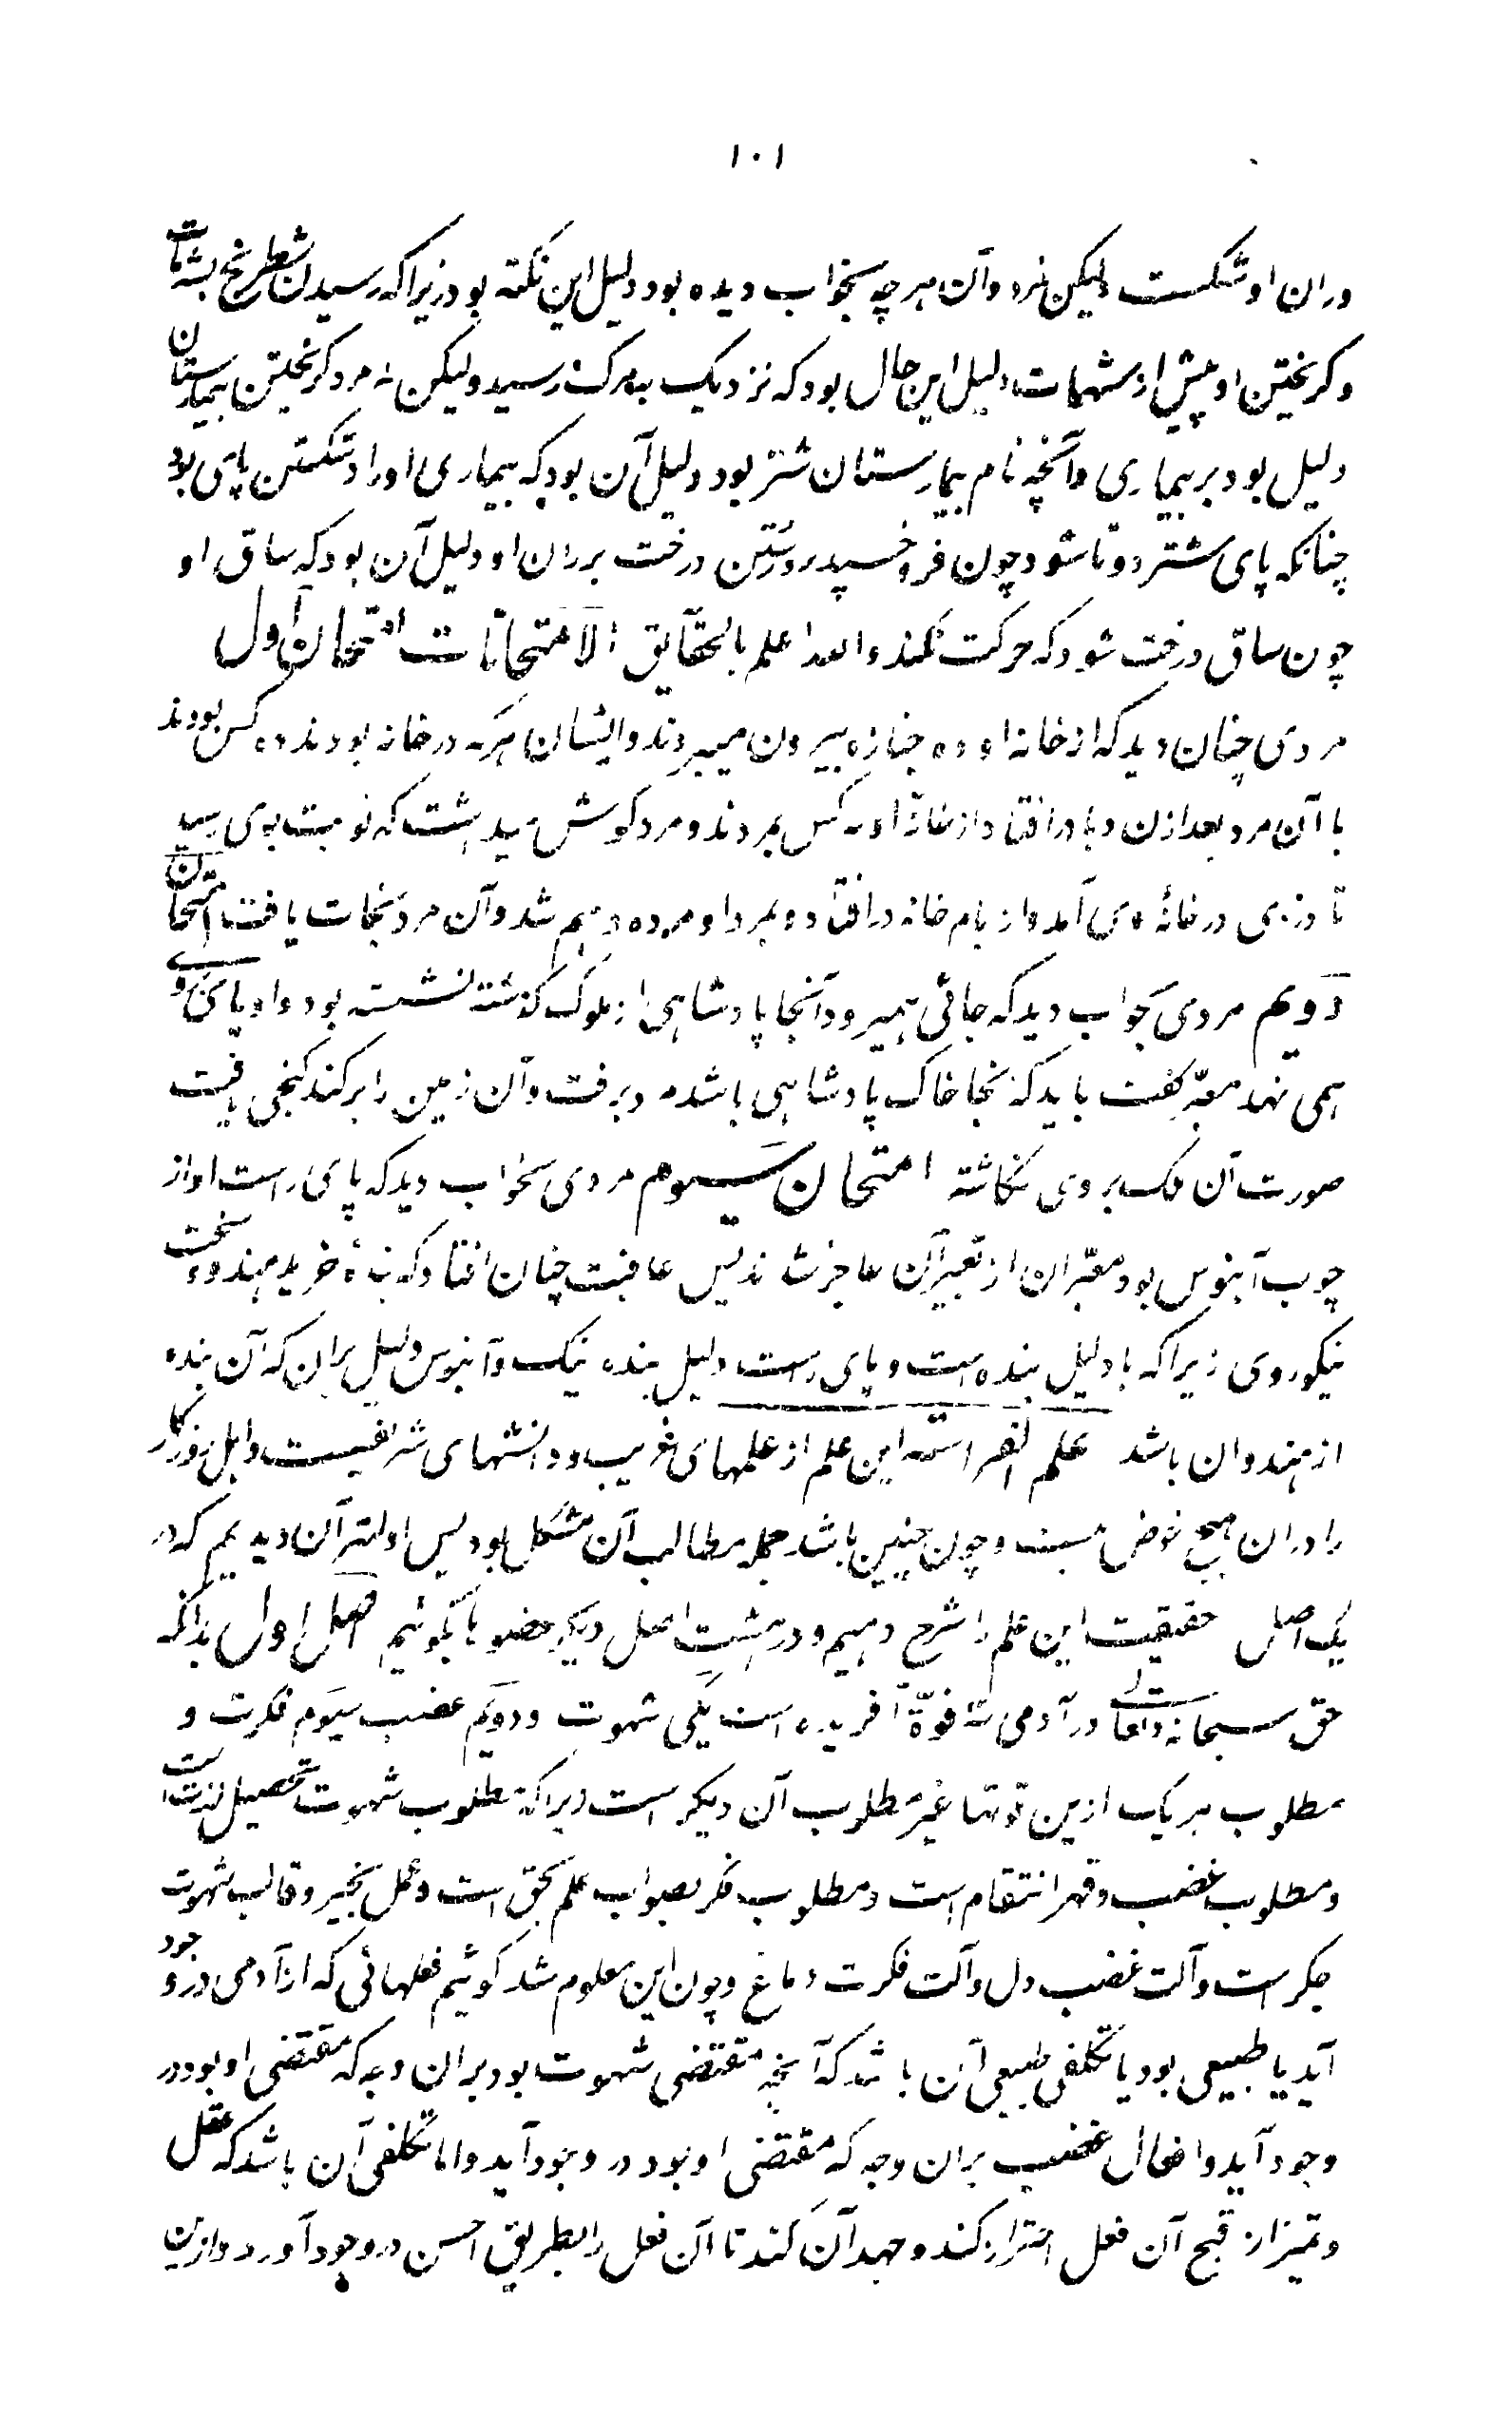 ۱۰۱
وران او شکست ولیکن نرد و آن هرچه بخواب دیده بود دلیل این نکته بود زیرا که رسیدن شطرنج بشهمات
و کریختن او پیش از شهمات دلیل این حال بود که نزدیک بمرک رسید ولیکن نه مرد کریختن بیمارستان
دلیل بود بر بیماری و آنچه نام بیمارستان شتر بود دلیل آن بود که بیماری او را در شکستن پای بود
چنانکه پای شتر دوتا شود چون فرو خسپد و رستن درخت بر ران او دلیل آن بود که ساق او
چون ساق درخت شود که حرکت نکند والله اعلم بالحقایق الامتحانات امتحان اول
مردی چنان دید که از خانه او ده جنازه بیرون میبردند و ایشان هرکه در خانه بودند ده کس بودند
با آن مرد بعد ازان وبا در افتاد از خانهٔ او نه کس بمردند و مرد کوش میداشت که نوبت بوی رسید
تا دزدی در خانهٔ وی آمد و از بام خانه در افتاد و بمرد او مرده دهم شد و آن مرد نجات یافت امتحان
دویم مردی بخواب دید که جائی همیرود آنجا پادشاهی از ملوک گذشته نشسته بود و او پای بروی
همی نهد معبر گفت باید که آنجا خاک پادشاهی باشد مرد برفت و آن زمین را برکند کنجی یافت
صورت آن ملک بروی نگاشته امتحان سیوم مردی بخواب دید که پای راست او از
چوب آبنوس بود معبّران از تعبیر آن عاجز شدند پس عاقبت چنان افتاد که بندهٔ خرید هندو سخت
نیکوروی زیرا که پا دلیل بنده است و پای راست دلیل بنده نیک و آبنوس دلیل بران که آن بنده
از هندوان باشد علم الفراسته این علم از علمهای غریب و دانشهای شریفیست و اهل روزکار
را دران هیچ خوض نیست و چون چنین باشد جمله مطالب آن مشکل بود پس اولتر آن دیدیم که در
یک اصل حقیقت این علم را شرح دهیم و در هشت اصل دیکر عضوها بکوئیم اصل اول بدانکه
حق سبحانه و تعالی در آدمی سه قوّة آفریده است یکی شهوت و دویم غضب سیوم فکرت و
مطلوب هریک ازین قوتها غیر مطلوب آن دیکر است زیرا که مطلوب شهوت تحصیل لذتست
و مطلوب غضب و قهر انتقام است و مطلوب فکر بصواب علم بحق است و عمل بخیر و قالب شهوت
جکر است و آلت غضب دل و آلت فکرت دماغ و چون این معلوم شد کوئیم فعلهائی که از آدمی در وجود
آید یا طبیعی بود یا تکلفی طبیعی آن باشد که آنچه مقتضی شهوت بود بران وجه که مقتضی او بود در
وجود آید و افعال غضب بران وجه که مقتضی او بود در وجود آید و اما تکلفی آن باشد که عقل
و تمیز از قبح آن فعل احتراز کند و جهد آن کند تا آن فعل را بطریق احسن در وجود آورد و ازین